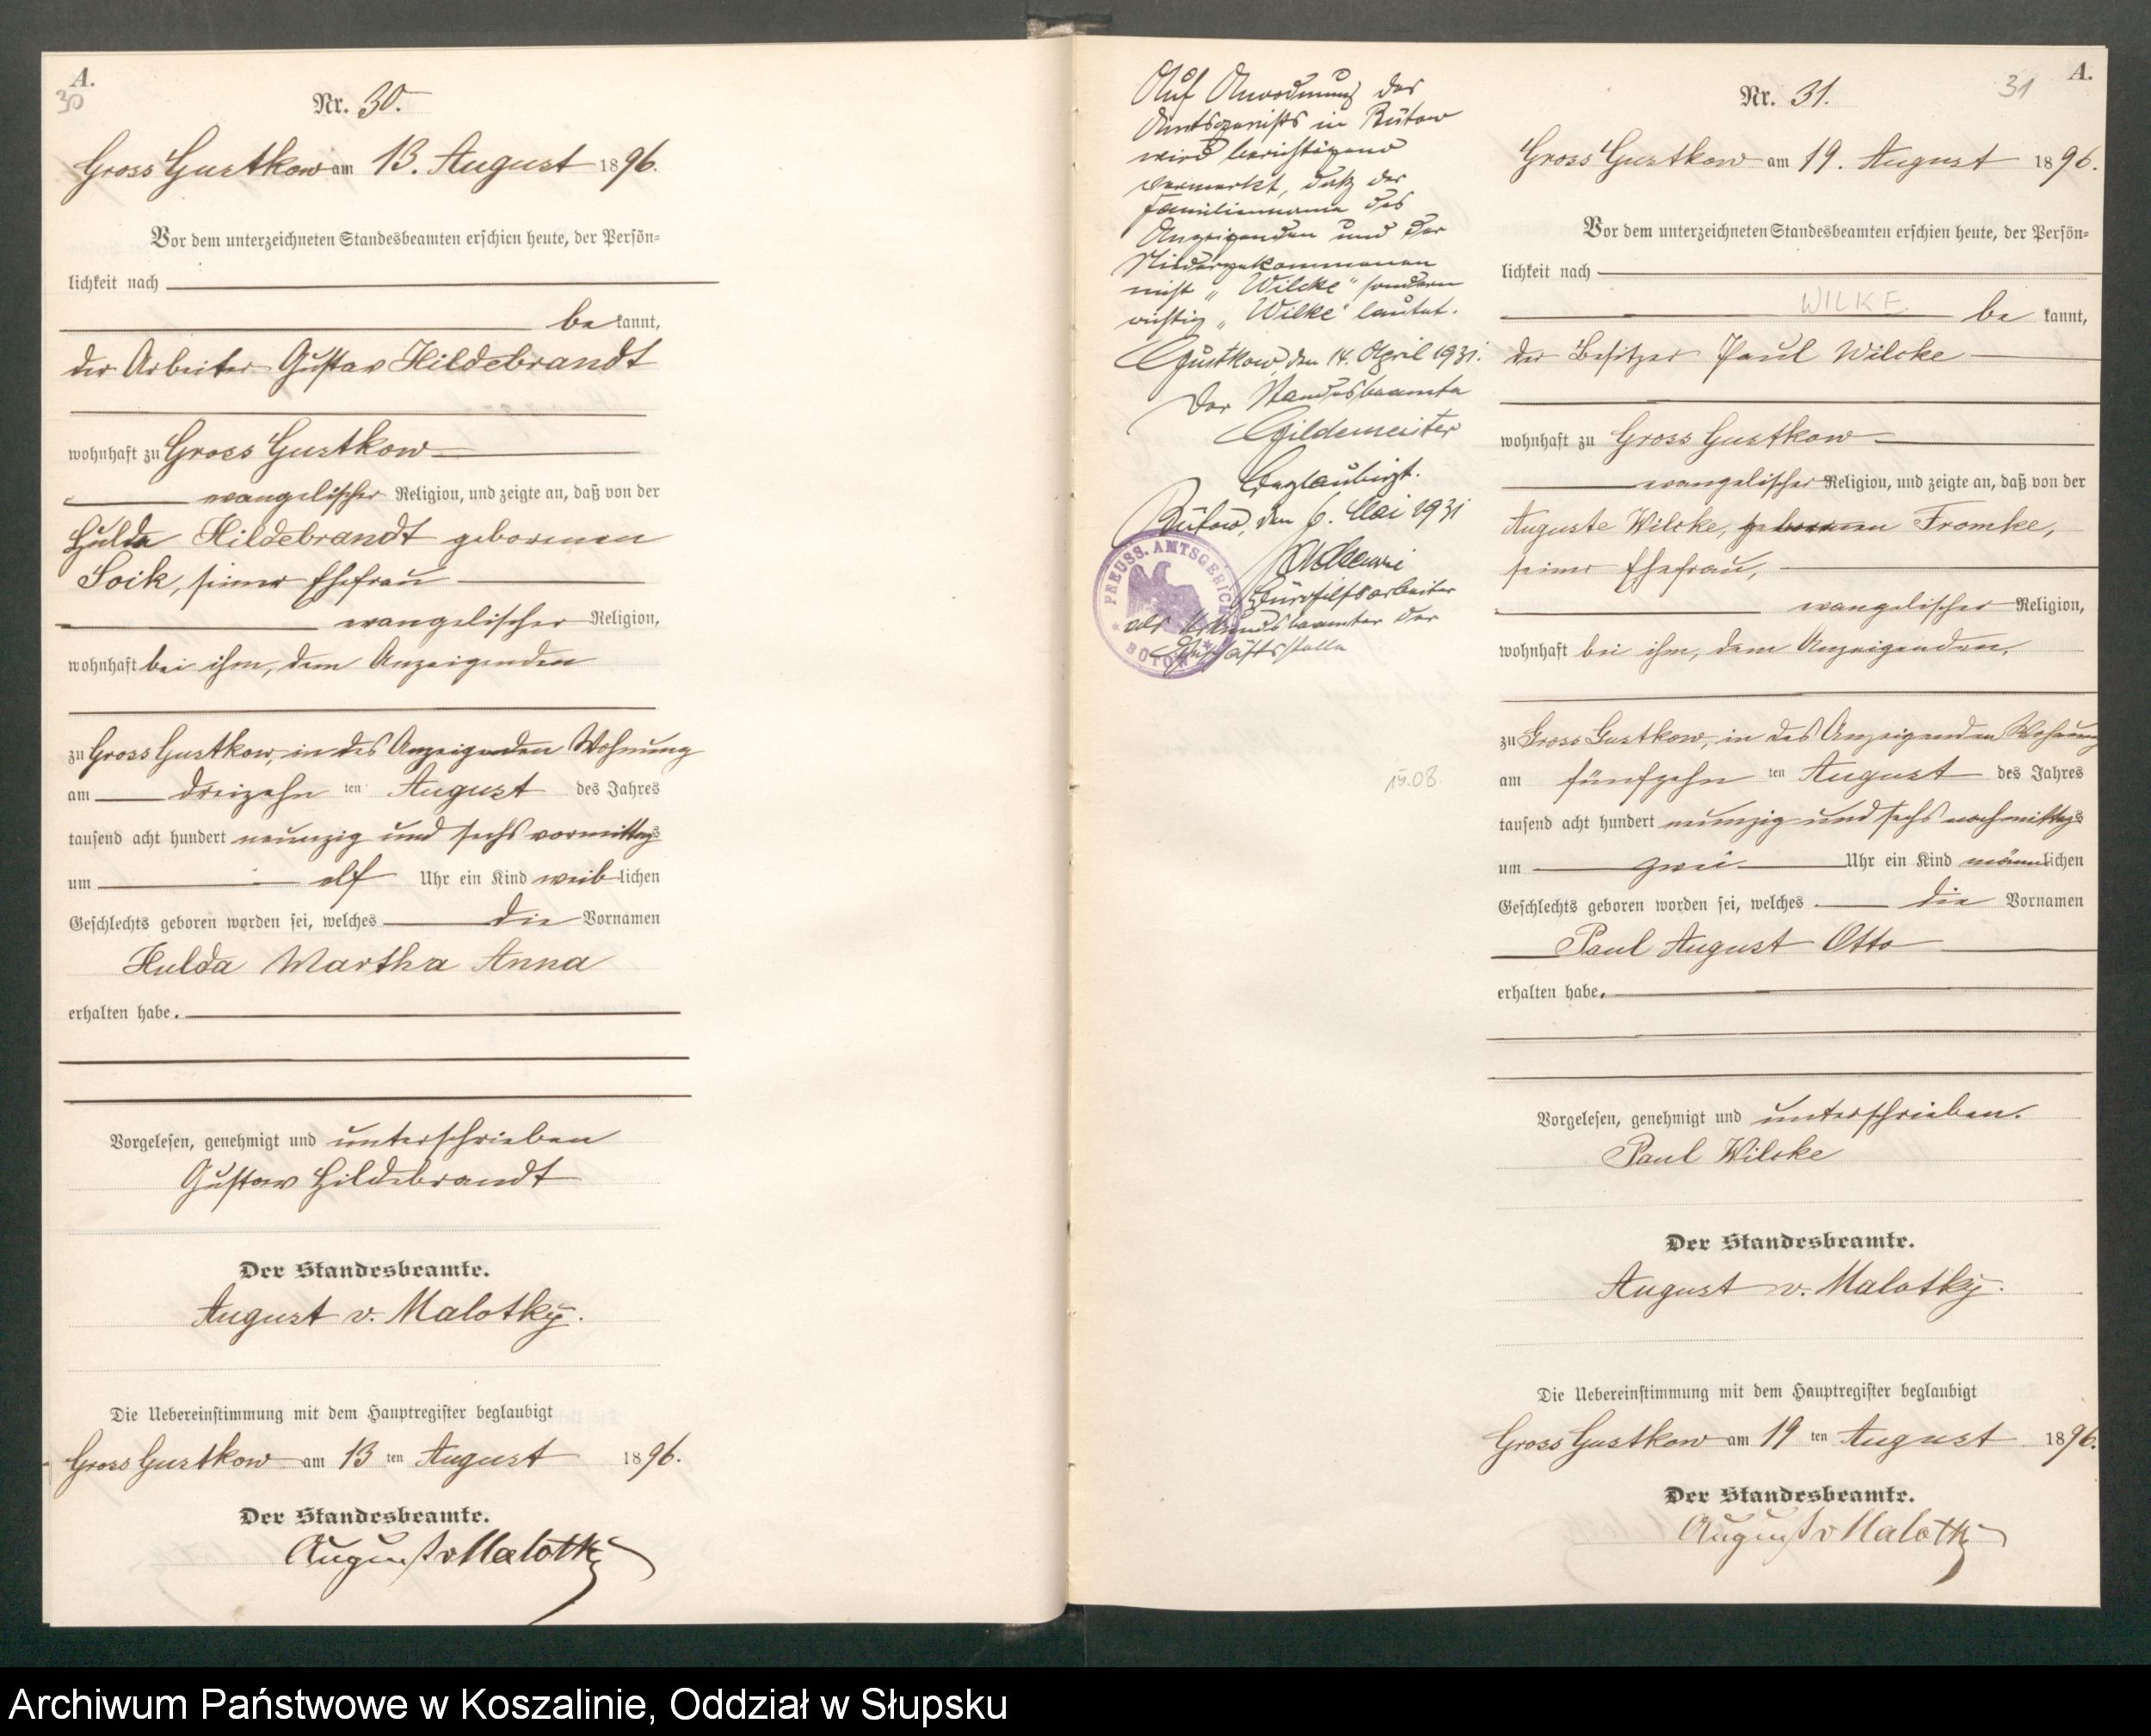 A.
30
Nr. 30.
Gross Gustkow am 13. August 1896.
Vor dem unterzeichneten Standesbeamten erschien heute, der Persön-
lichkeit nach
be kannt,
der Arbeiter Gustav Hildebrandt
wohnhaft zu Gross Gustkow
evangelischer Religion, und zeigte an, daß von der
Hulda Hildebrandt geborenen
Soik, seiner Ehefrau
evangelischer Religion,
wohnhaft bei ihm, dem Anzeigenden
zu Gross Gustkow, in des Anzeigenden Wohnung
am dreizehn ten August des Jahres
tausend acht hundert neunzig und sechs vormittags
um elf Uhr ein Kind weiblichen
Geschlechts geboren worden sei, welches die Vornamen
Hulda Martha Anna
erhalten habe.
Vorgelesen, genehmigt und unterschrieben
Gustav Hildebrandt
Der Standesbeamte.
August v. Malotky.
Die Uebereinstimmung mit dem Hauptregister beglaubigt
Gross Gustkow am 13 ten August 1896.
Der Standesbeamte.
August v Malotky
Auf Anordnung des
Amtsgerichts in Bütow
wird berichtigend
vermerkt, daß der
Familienname des
Anzeigenden und der
Niedergekommenen
nicht „Wilcke" sondern
richtig „Wilke" lautet.
Gustkow, den 14. April 1931.
Der Standesbeamte
Gildemeister
Beglaubigt.
Bütow, den 6. Mai 1931
Bürohilfsarbeiter
als Urkundsbeamter der
Geschäftsstelle
PREUSS. AMTSGERICHT
BÜTOW
15.08.
A.
31
Nr. 31.
Gross Gustkow am 19. August 1896.
Vor dem unterzeichneten Standesbeamten erschien heute, der Persön-
lichkeit nach
WILKE
be kannt,
der Besitzer Paul Wilcke
wohnhaft zu Gross Gustkow
evangelischer Religion, und zeigte an, daß von der
Auguste Wilcke, geborenen Fromke,
seiner Ehefrau,
evangelischer Religion,
wohnhaft bei ihm, dem Anzeigenden,
zu Gross Gustkow, in des Anzeigenden Wohnung
am fünfzehn ten August des Jahres
tausend acht hundert neunzig und sechs nachmittags
um zwei Uhr ein Kind männlichen
Geschlechts geboren worden sei, welches die Vornamen
Paul August Otto
erhalten habe.
Vorgelesen, genehmigt und unterschrieben.
Paul Wilcke
Der Standesbeamte.
August v. Malotky.
Die Uebereinstimmung mit dem Hauptregister beglaubigt
Gross Gustkow am 19 ten August 1896.
Der Standesbeamte.
August v Malotky
Archiwum Państwowe w Koszalinie, Oddział w Słupsku